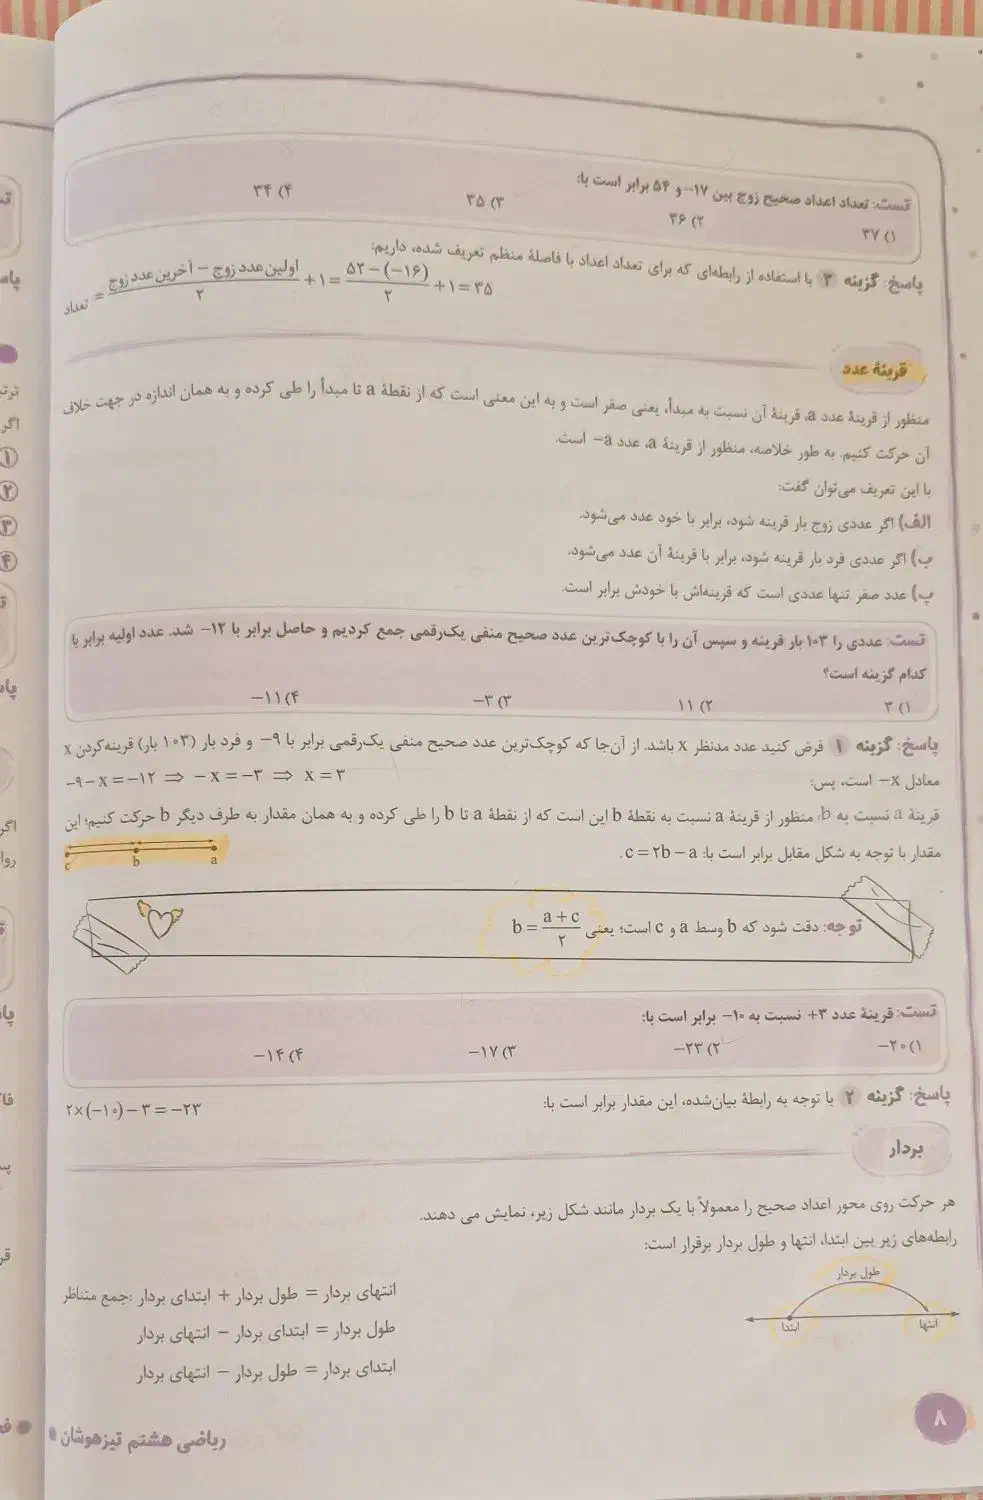 تست: تعداد اعداد صحیح زوج بین ۱۷− و ۵۴ برابر است با:
۱) ۳۷ ۲) ۳۶ ۳) ۳۵ ۴) ۳۴
پاسخ: گزینه ۳ با استفاده از رابطه‌ای که برای تعداد اعداد با فاصلهٔ منظم تعریف شده، داریم:
تعداد = (اولین عدد زوج − آخرین عدد زوج)/۲ + ۱ = (۵۲ − (−۱۶))/۲ + ۱ = ۳۵
قرینهٔ عدد
منظور از قرینهٔ عدد a، قرینهٔ آن نسبت به مبدأ، یعنی صفر است و به این معنی است که از نقطهٔ a تا مبدأ را طی کرده و به همان اندازه در جهت خلاف
آن حرکت کنیم. به طور خلاصه، منظور از قرینهٔ a، عدد a− است.
با این تعریف می‌توان گفت:
الف) اگر عددی زوج بار قرینه شود، برابر با خود عدد می‌شود.
ب) اگر عددی فرد بار قرینه شود، برابر با قرینهٔ آن عدد می‌شود.
پ) عدد صفر تنها عددی است که قرینه‌اش با خودش برابر است.
تست: عددی را ۱۰۳ بار قرینه و سپس آن را با کوچک‌ترین عدد صحیح منفی یک‌رقمی جمع کردیم و حاصل برابر با ۱۲− شد. عدد اولیه برابر با
کدام گزینه است؟
۱) ۳ ۲) ۱۱ ۳) ۳− ۴) ۱۱−
پاسخ: گزینه ۱ فرض کنید عدد مدنظر x باشد. از آن‌جا که کوچک‌ترین عدد صحیح منفی یک‌رقمی برابر با ۹− و فرد بار (۱۰۳ بار) قرینه‌کردن x
معادل x− است، پس: −۹ − x = −۱۲ ⇒ −x = −۳ ⇒ x = ۳
قرینهٔ a نسبت به b: منظور از قرینهٔ a نسبت به نقطهٔ b این است که از نقطهٔ a تا b را طی کرده و به همان مقدار به طرف دیگر b حرکت کنیم؛ این
مقدار با توجه به شکل مقابل برابر است با: c = ۲b − a.
c b a
توجه: دقت شود که b وسط a و c است؛ یعنی b = (a + c)/۲
تست: قرینهٔ عدد ۳+ نسبت به ۱۰− برابر است با:
۱) ۲۰− ۲) ۲۳− ۳) ۱۷− ۴) ۱۴−
پاسخ: گزینه ۲ با توجه به رابطهٔ بیان‌شده، این مقدار برابر است با: ۲×(−۱۰) − ۳ = −۲۳
بردار
هر حرکت روی محور اعداد صحیح را معمولاً با یک بردار مانند شکل زیر، نمایش می دهند.
رابطه‌های زیر بین ابتدا، انتها و طول بردار برقرار است:
طول بردار
ابتدا انتها
جمع متناظر: انتهای بردار = طول بردار + ابتدای بردار
طول بردار = ابتدای بردار − انتهای بردار
ابتدای بردار = طول بردار − انتهای بردار
۸
ریاضی هشتم تیزهوشان